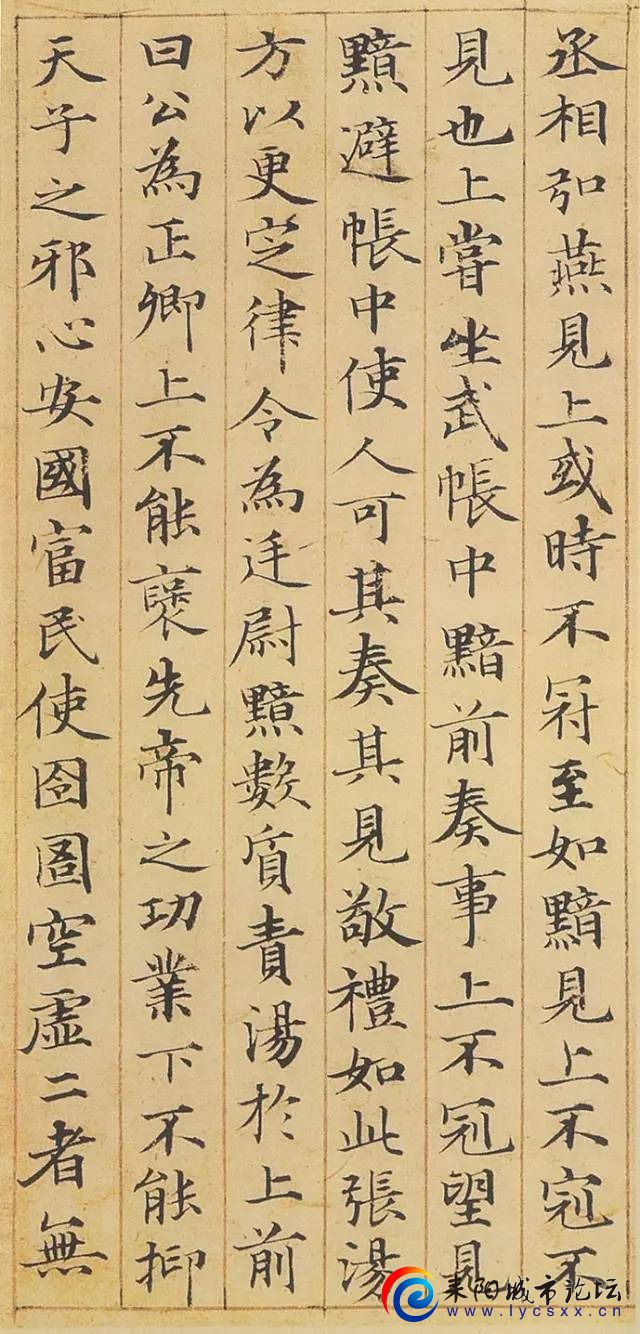 丞相弘燕見上或時不冠至如黯見上不冠不
見也上嘗坐武帳中黯前奏事上不冠望見
黯避帳中使人可其奏其見敬禮如此張湯
方以更定律令為廷尉黯數質責湯於上前
曰公為正卿上不能褒先帝之功業下不能抑
天子之邪心安國富民使囹圄空虛二者無
耒阳城市论坛
www.lycsxx.cn